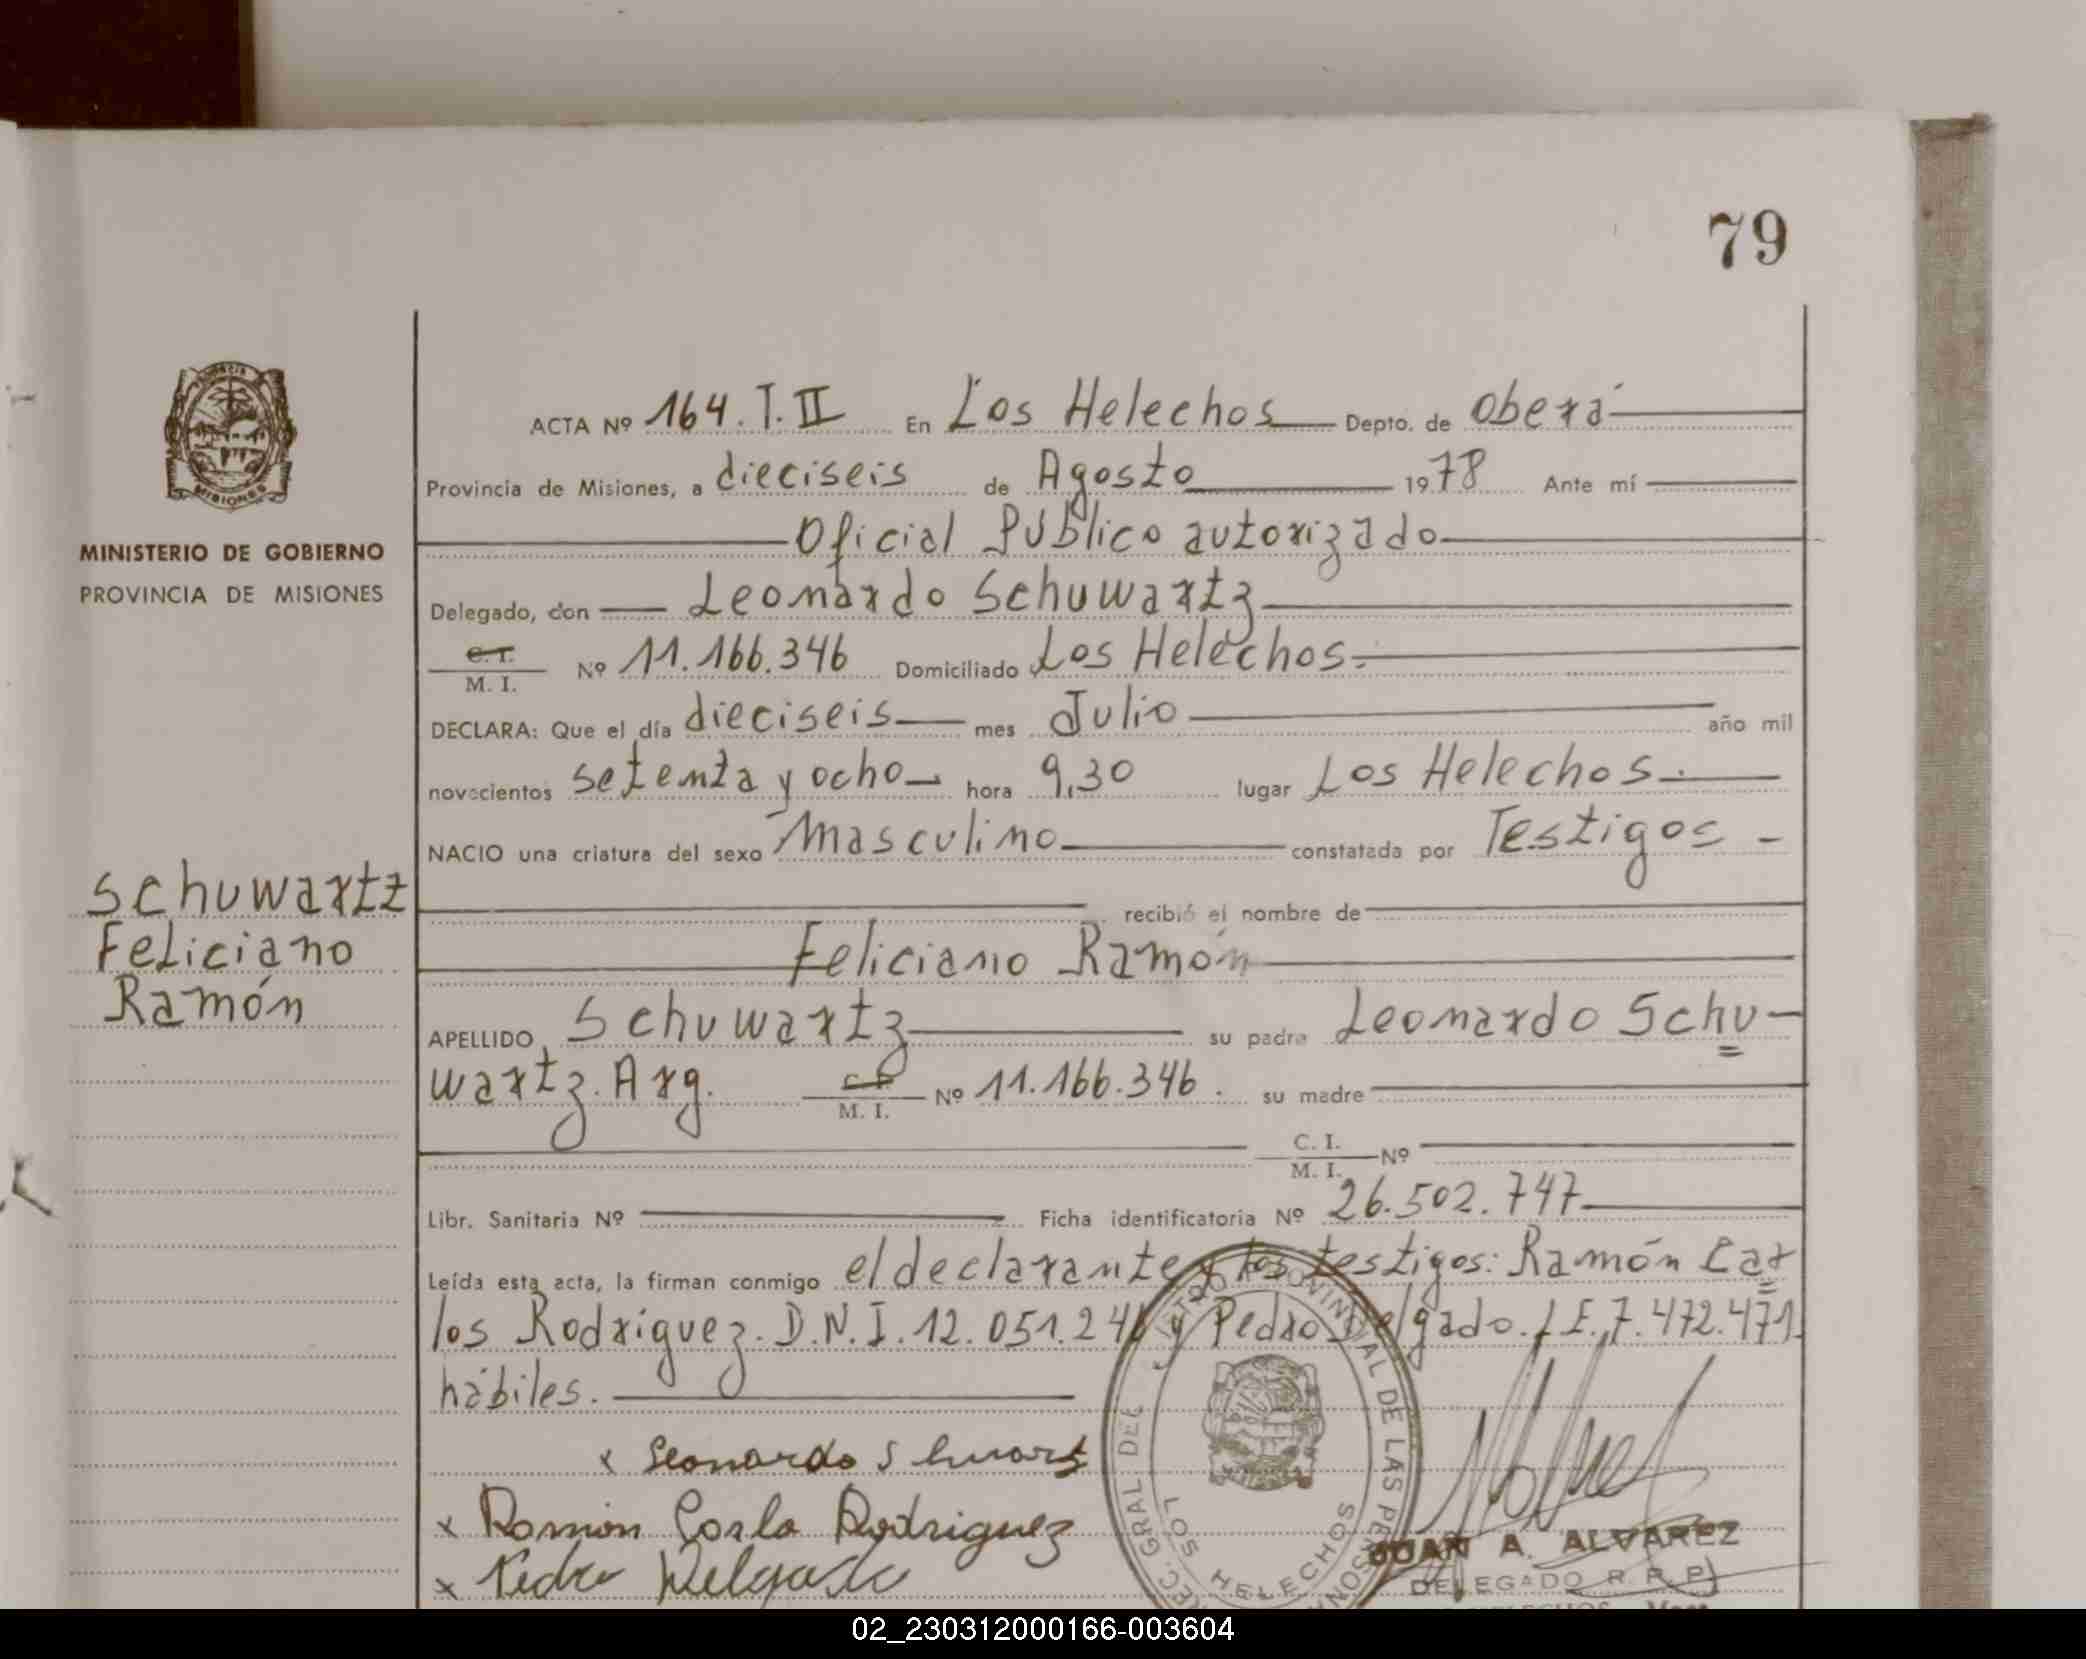 79
ACTA Nº 164. T. II En Los Helechos Depto. de Oberá
Provincia de Misiones, a dieciseis de Agosto 1978 Ante mí
Oficial Público autorizado
MINISTERIO DE GOBIERNO
PROVINCIA DE MISIONES
Delegado, don Leonardo Schuwartz
C. I. / M. I. Nº 11.166.346 Domiciliado Los Helechos.
DECLARA: Que el día dieciseis mes Julio año mil
novecientos setenta y ocho hora 9,30 lugar Los Helechos.
NACIO una criatura del sexo Masculino constatada por Testigos -
Schuwartz
Feliciano
Ramón
recibió el nombre de
Feliciano Ramón
APELLIDO Schuwartz su padre Leonardo Schu-
wartz. Arg. M. I. Nº 11.166.346. su madre
C. I. / M. I. Nº
Libr. Sanitaria Nº Ficha identificatoria Nº 26.502.747
Leída esta acta, la firman conmigo el declarante y los testigos: Ramón Car
los Rodriguez. D.N.I. 12.051.246 y Pedro Delgado. L.E. 7.472.471.
hábiles.
x Leonardo
x Ramon Carlo Rodriguez
x Pedro Delgado
PROVINCIAL DE LAS PERSONAS
GRAL DEL
LOS HELECHOS
JUAN A. ALVAREZ
DELEGADO R. P. P.
02_230312000166-003604